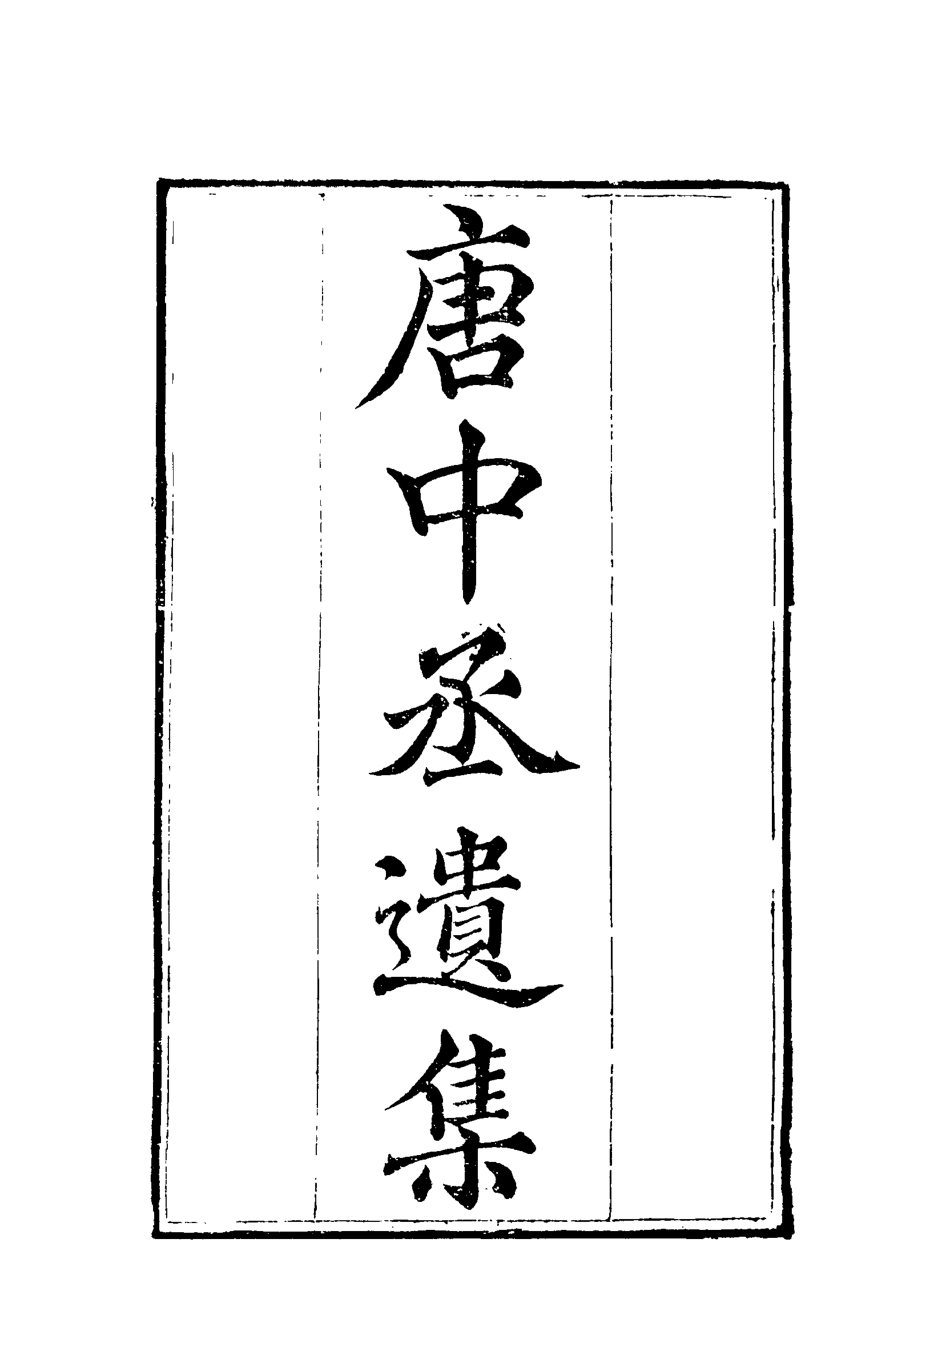 唐中丞遺集